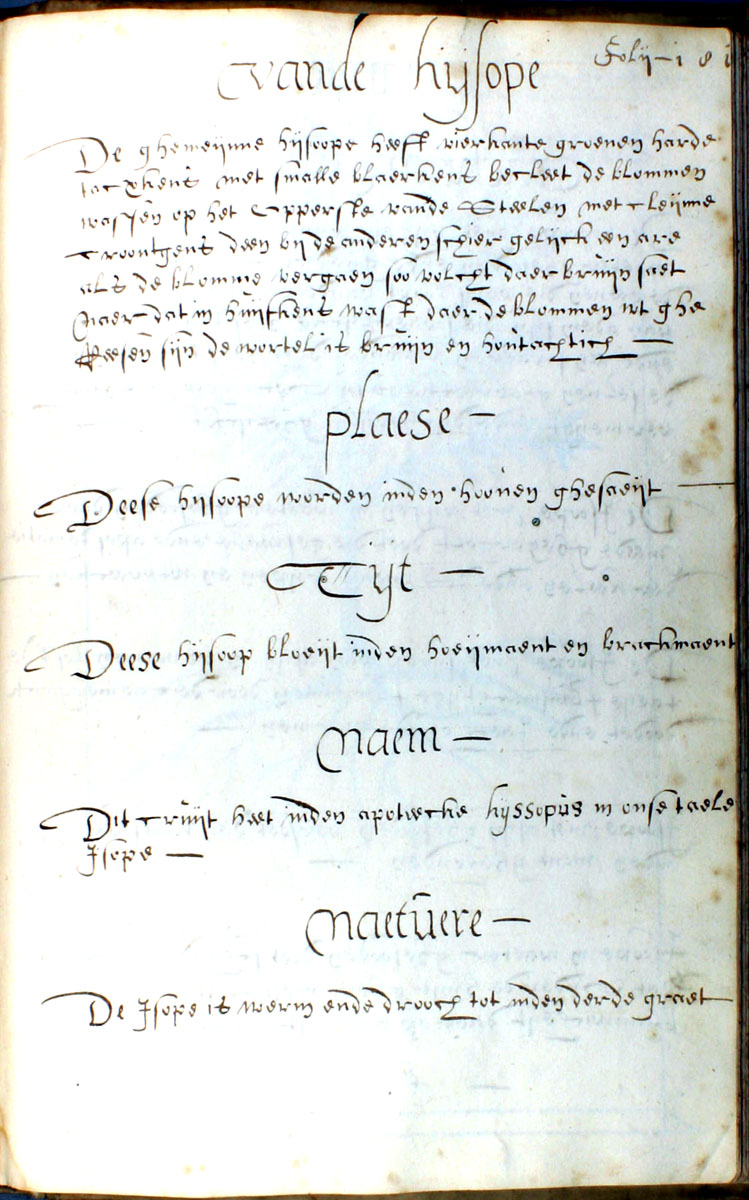 Folij - 181
vande hijsope
De ghemeijnne hijsoope heeft vierkante groenen harde
tacxkens met smalle blaerkens becleet de blommen
wassen op het Upperste vande Steelen met cleijnne
croontgens deen bij de anderen schier gelijck een are
als de blomme vergaen soo volcht daer bruijn saet
Naer dat in huijskens wast daer de blommen wt ghe
Weesen sijn de wortel is bruijn en houtachtich —
plaese —
Deese hijsoope worden inden hooven ghesaeijt —
Tijt —
Deese hijsoop bloeijt inden hoeijmaent en brachmaent
Naem —
Dit cruijt heet inden apoteecke hijssopus in onse taele
Isope —
Naetuere —
De Isope is werm ende drooch tot inden derde graet